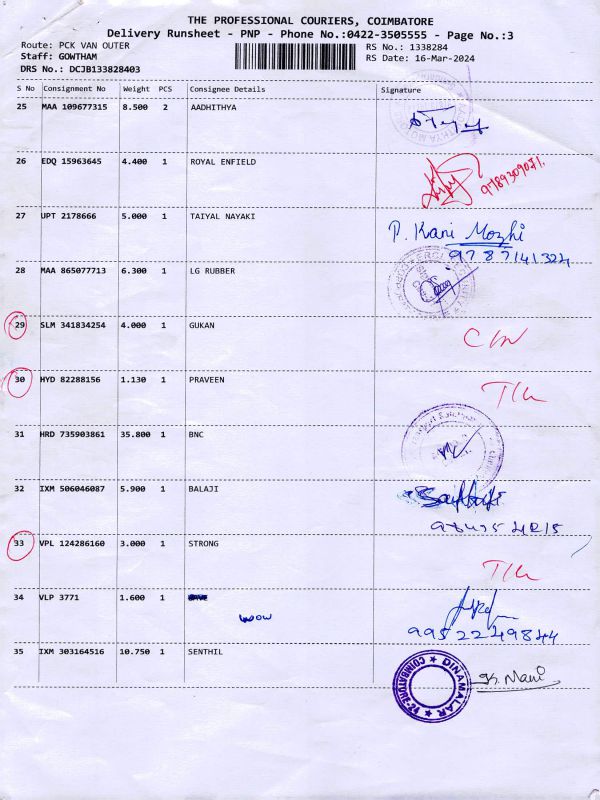 THE PROFESSIONAL COURIERS, COIMBATORE
Delivery Runsheet - PNP - Phone No.:0422-3505555 - Page No.:3
Route: PCK VAN OUTER RS No.: 1338284
Staff: GOWTHAM RS Date: 16-Mar-2024
DRS No.: DCJB133828403
S No Consignment No Weight PCS Consignee Details Signature
25 MAA 109677315 8.500 2 AADHITHYA
26 EDQ 15963645 4.400 1 ROYAL ENFIELD
9789309071.
27 UPT 2178666 5.000 1 TAIYAL NAYAKI
P. Kani Mozhi
9787141324
28 MAA 865077713 6.300 1 LG RUBBER
29 SLM 341834254 4.000 1 GUKAN
30 HYD 82288156 1.130 1 PRAVEEN
31 HRD 735903861 35.800 1 BNC
32 IXM 506046087 5.900 1 BALAJI
33 VPL 124286160 3.000 1 STRONG
34 VLP 3771 1.600 1
WOW
9952249844
35 IXM 303164516 10.750 1 SENTHIL
DINAMALAR
COIMBATORE-24
K. Mani